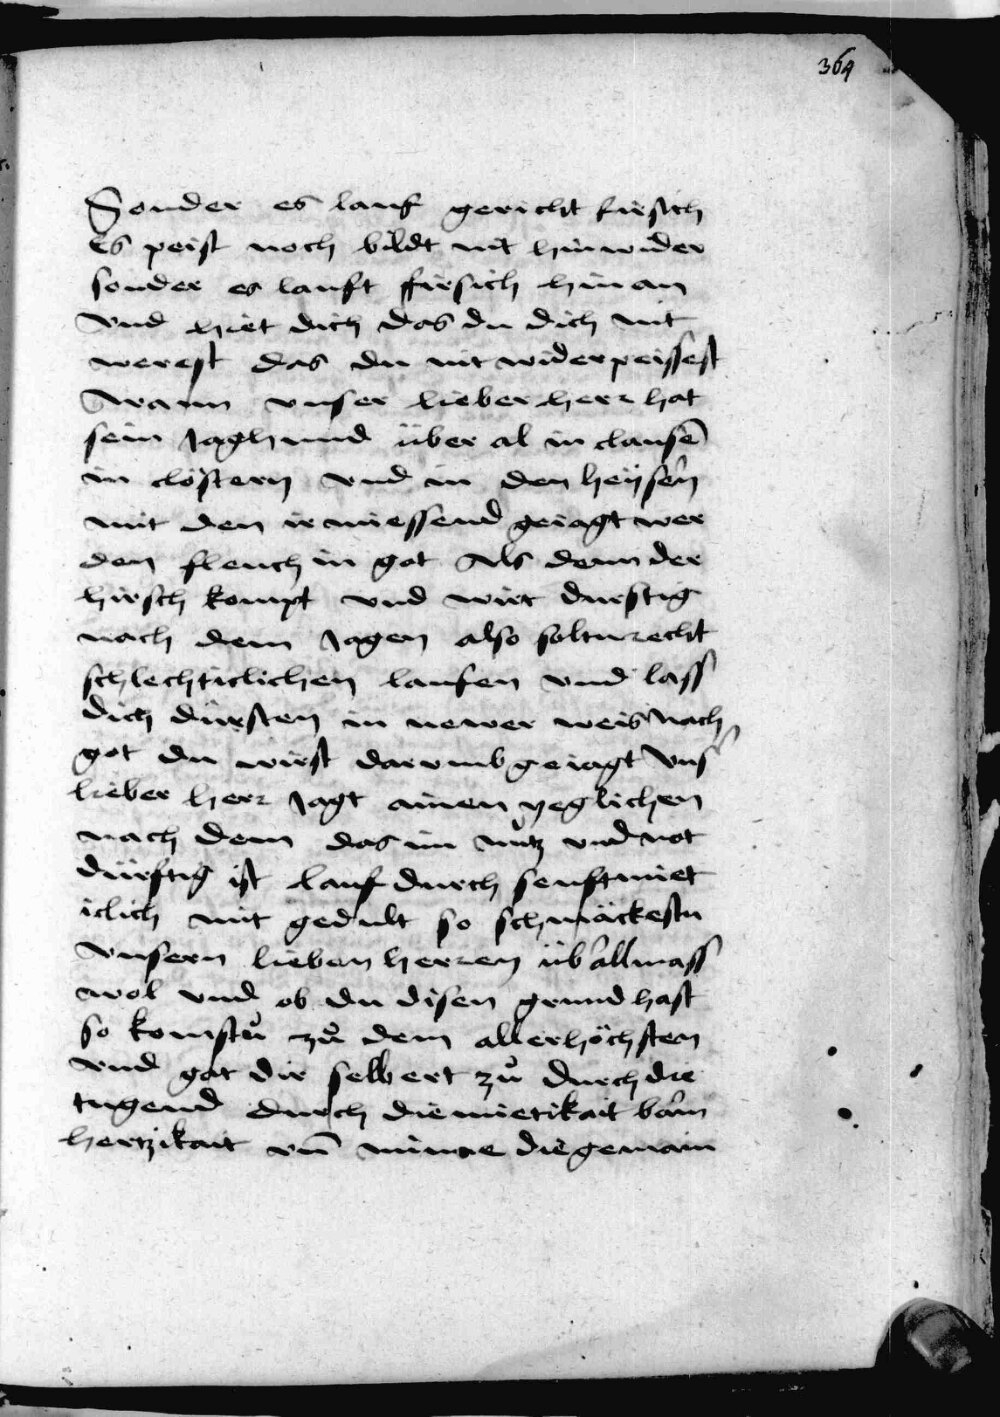 364
Sonder es lauf gericht fürsich
Es peist noch bildt nit hinwider
sonder es lauft fürsich hin an
vnd hiet dich das du dich nit
werest das du nit widerpeissest
wann vnser lieber herr hat
sein Jaghund über al in clausē
in clöstern vnd in den heÿsern
mit den ir miessend geiagt wer
den fleuch in got Als denn der
hirsch kompt vnd wirt durstig
nach dem Jagen also soltu recht
schlechticlichen laufen vnd lass
dich dürsten in newer weis nach
got du wirst darumb geiagt vnser
lieber herr Jagt ainen yeglichen
nach dem das im nutz vnd not
dürftig ist lauf durch senftmiet
iclich mit gedult so schmäckestu
vnsern lieben herren über allmass
wol vnd ob du disen grund hast
so komstu zů dem allerhöchsten
vnd gat dir selbert zů durch die
tugend durch diemietikait barm
hertzikait vn̄ minne die gemain